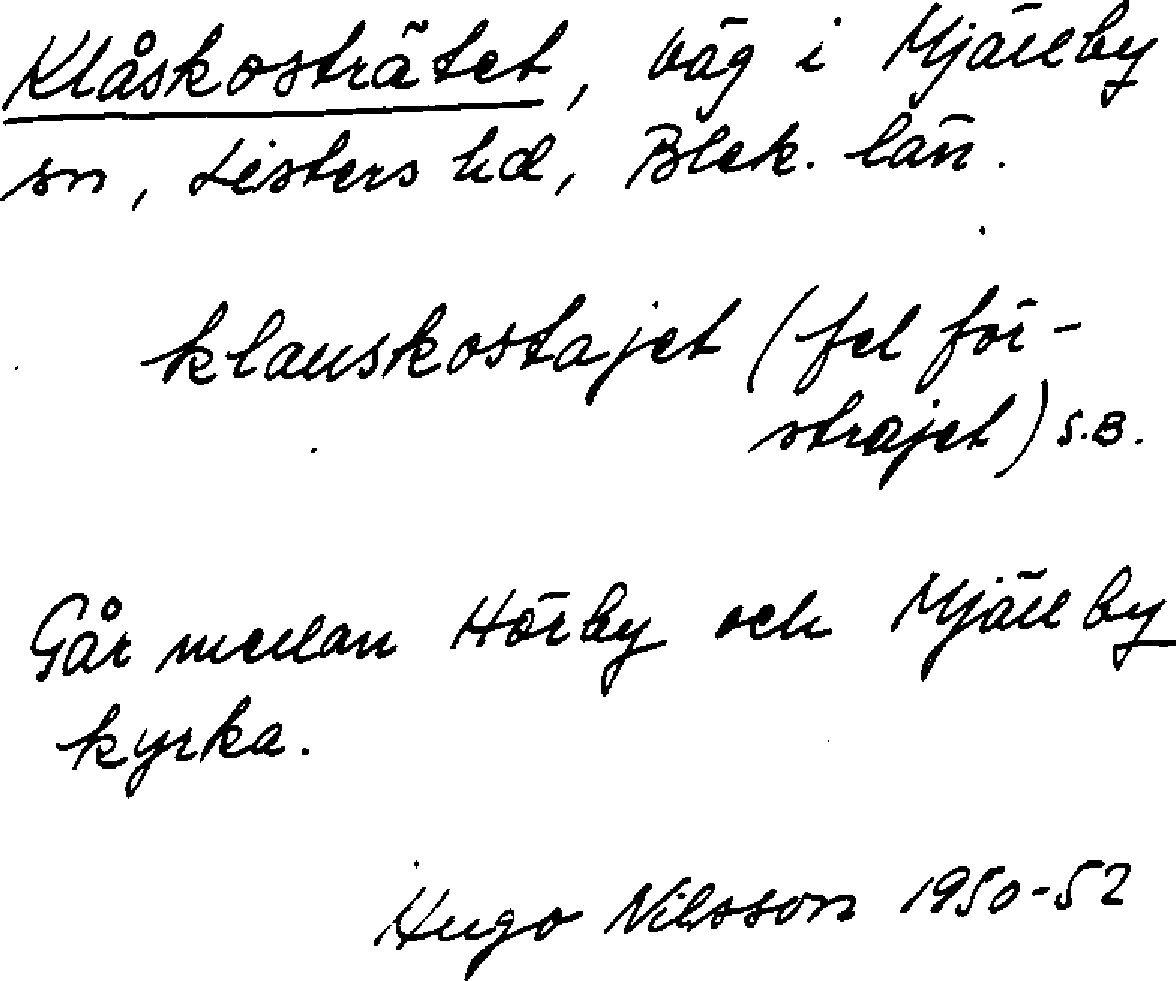 Klåskosträtet, väg i Mjällby
sn, Listers hd, Blek. län.
klauskostajet (fel för-
strajet) S.B.
Går mellan Hörby och Mjällby
kyrka.
Hugo Nilsson 1950-52